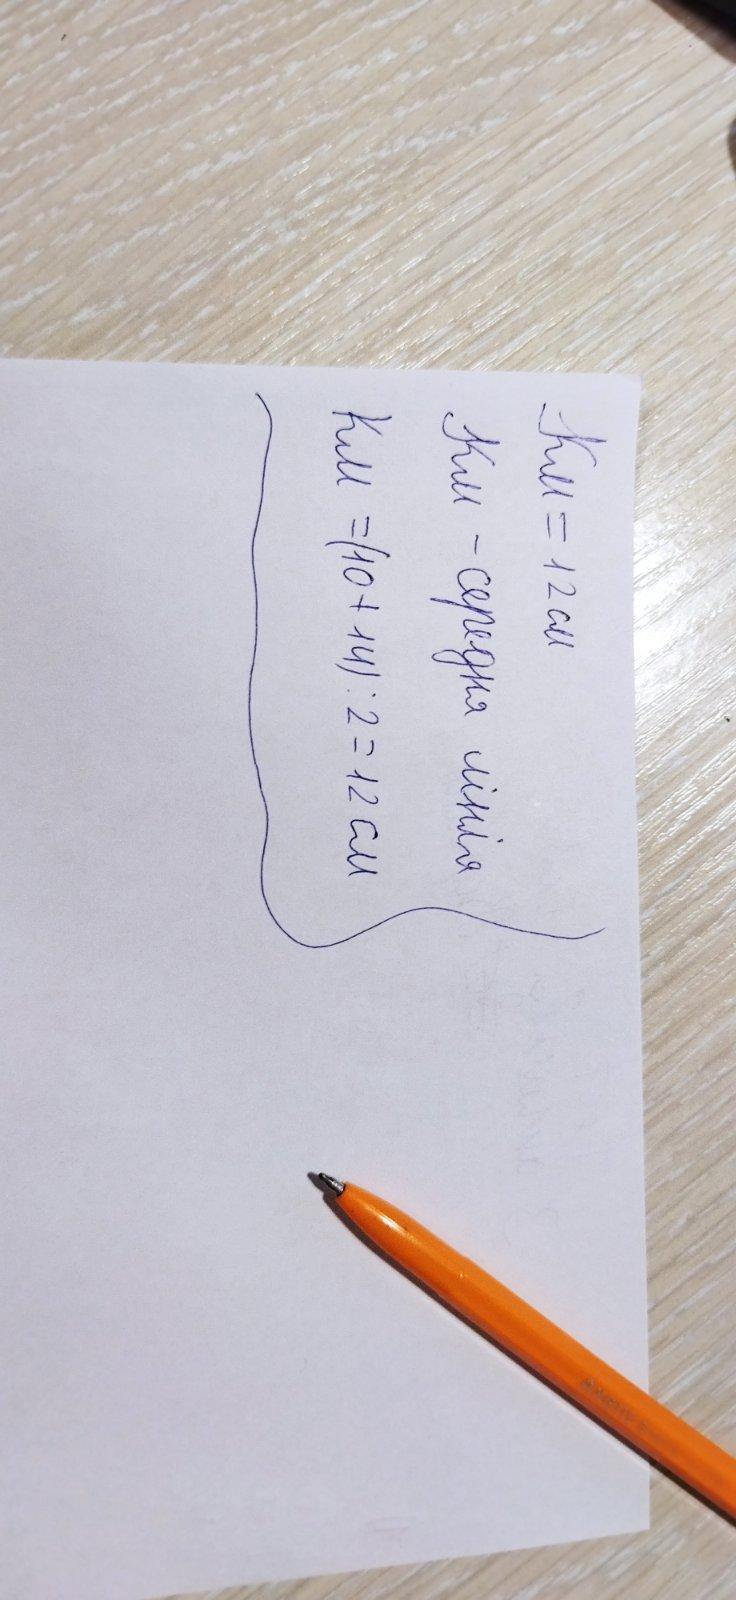 КМ = 12 см
КМ - середня лінія
КМ = (10 + 14) : 2 = 12 см